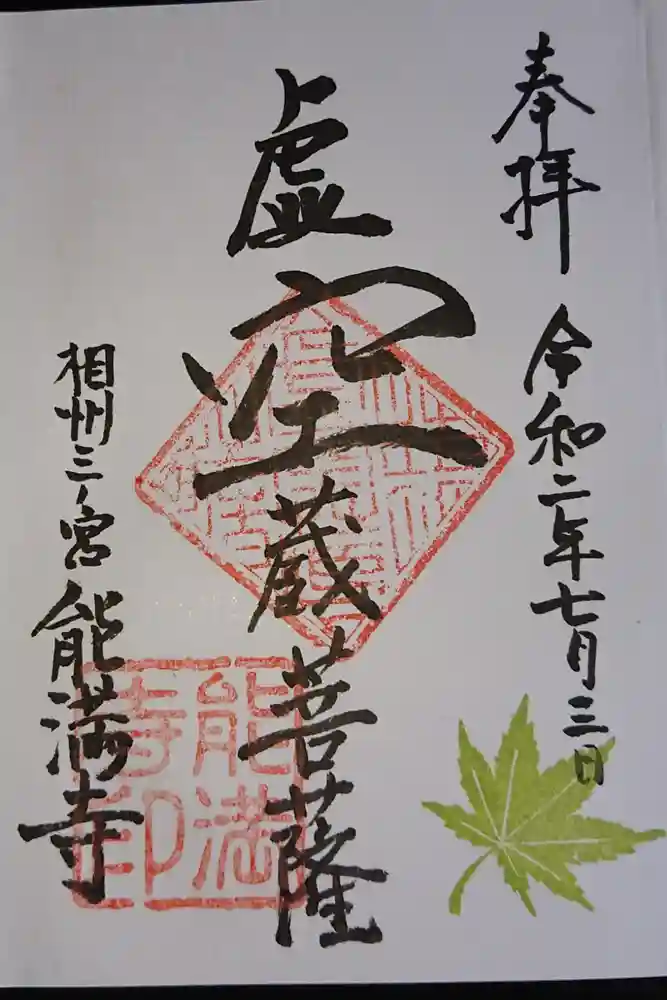 奉拝
令和二年七月三日
虚空蔵菩薩
相州三ノ宮
能満寺
能満
寺印